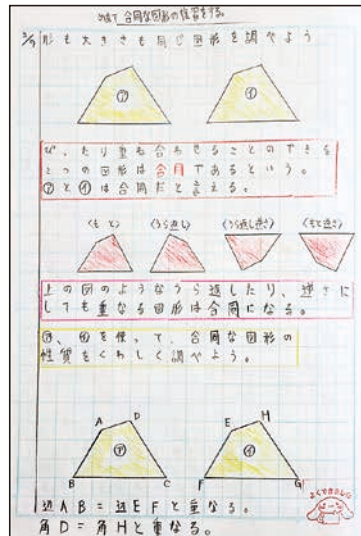 めあて 合同な図形の性質をする。
2/9 形も大きさも同じ図形を調べよう
㋐ ㋑
ぴったり重ね合わせることのできる
2つの図形は合同であるという。
㋐と㋑は合同だと言える。
(もと) (うら返し) (うら返し逆さ) (もと逆さ)
上の図のようなうら返したり、逆さに
しても重なる図形は合同になる。
㋐、㋑を使って、合同な図形の
性質をくわしく調べよう。
A D E H
㋐ ㋑
B C F G
辺AB=辺EFと重なる。
角D=角Hと重なる。